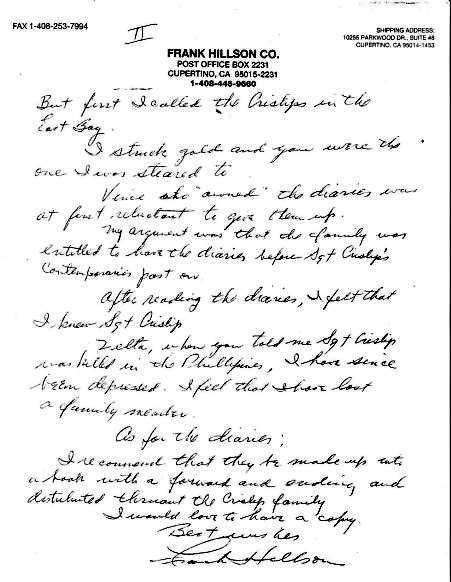 FAX 1-408-253-7994
II
SHIPPING ADDRESS:
10256 PARKWOOD DR., SUITE #8
CUPERTINO, CA 95014-1453
FRANK HILLSON CO.
POST OFFICE BOX 2231
CUPERTINO, CA 95015-2231
1-408-446-9660
But first I called the Crislips in the
East Bay.
I struck gold and you were the
one I was steared to
Vince who "owned" the diaries was
at first reluctant to give them up.
My argument was that the family was
entitled to have the diaries before Sgt Crislip's
Contemporaries past on
After reading the diaries, I felt that
I knew Sgt Crislip
Zelta, when you told me Sgt Crislip
was killed in the Phillipines, I have since
been depressed. I feel that I have lost
a family member.
As for the diaries;
I recommend that they be made up into
a book with a forward and ending, and
distributed thruout the Crislip family
I would love to have a copy.
Best wishes
Frank Hillson